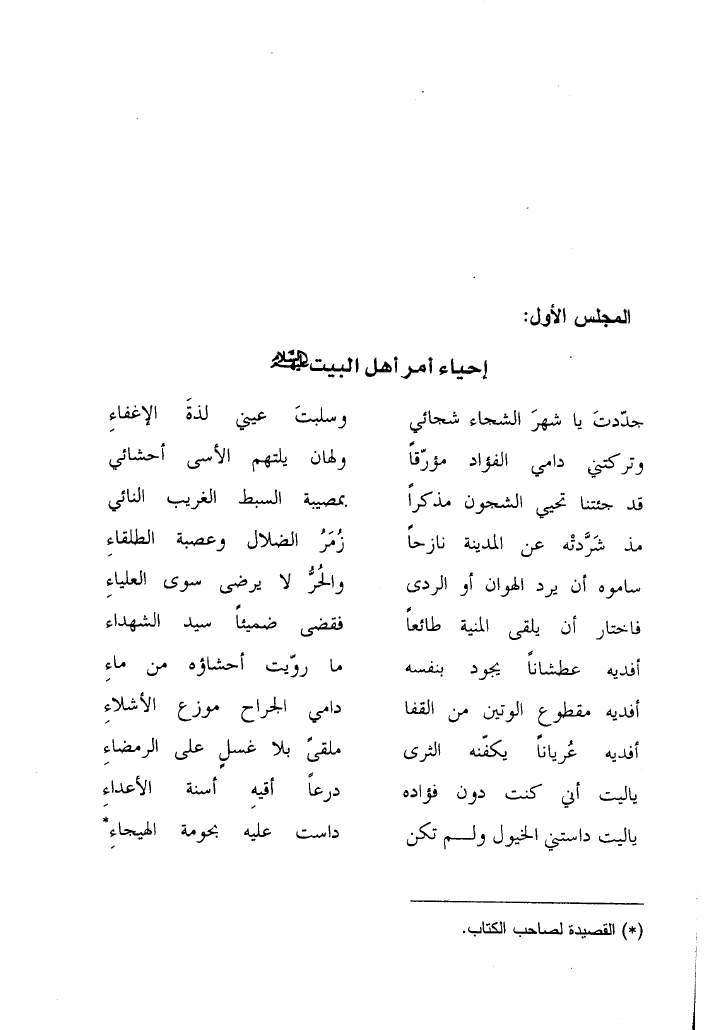 المجلس الأول:
إحياء أمر أهل البيت عليهم السلام
جدّدتَ يا شهرَ الشجاء شجائي وسلبتَ عيني لذةَ الإغفاءِ
وتركتني دامي الفؤاد مؤرّقاً ولهان يلتهم الأسى أحشائي
قد جئتنا تحيي الشجون مذكراً بمصيبة السبط الغريب النائي
مذ شَرَّدتْه عن المدينة نازحاً زُمَرُ الضلال وعصبة الطلقاءِ
ساموه أن يرد الهوان أو الردى والحُرُّ لا يرضى سوى العلياءِ
فاختار أن يلقى المنية طائعاً فقضى ضميئاً سيد الشهداء
أفديه عطشاناً يجود بنفسه ما روّيت أحشاؤه من ماءِ
أفديه مقطوع الوتين من القفا دامي الجراح موزع الأشلاءِ
أفديه عُرياناً يكفّنه الثرى ملقىً بلا غسلٍ على الرمضاءِ
ياليت أني كنت دون فؤاده درعاً أقيهِ أسنة الأعداءِ
ياليت داستني الخيول ولـــم تكن داست عليه بحومة الهيجاءِ*
(*) القصيدة لصاحب الكتاب.